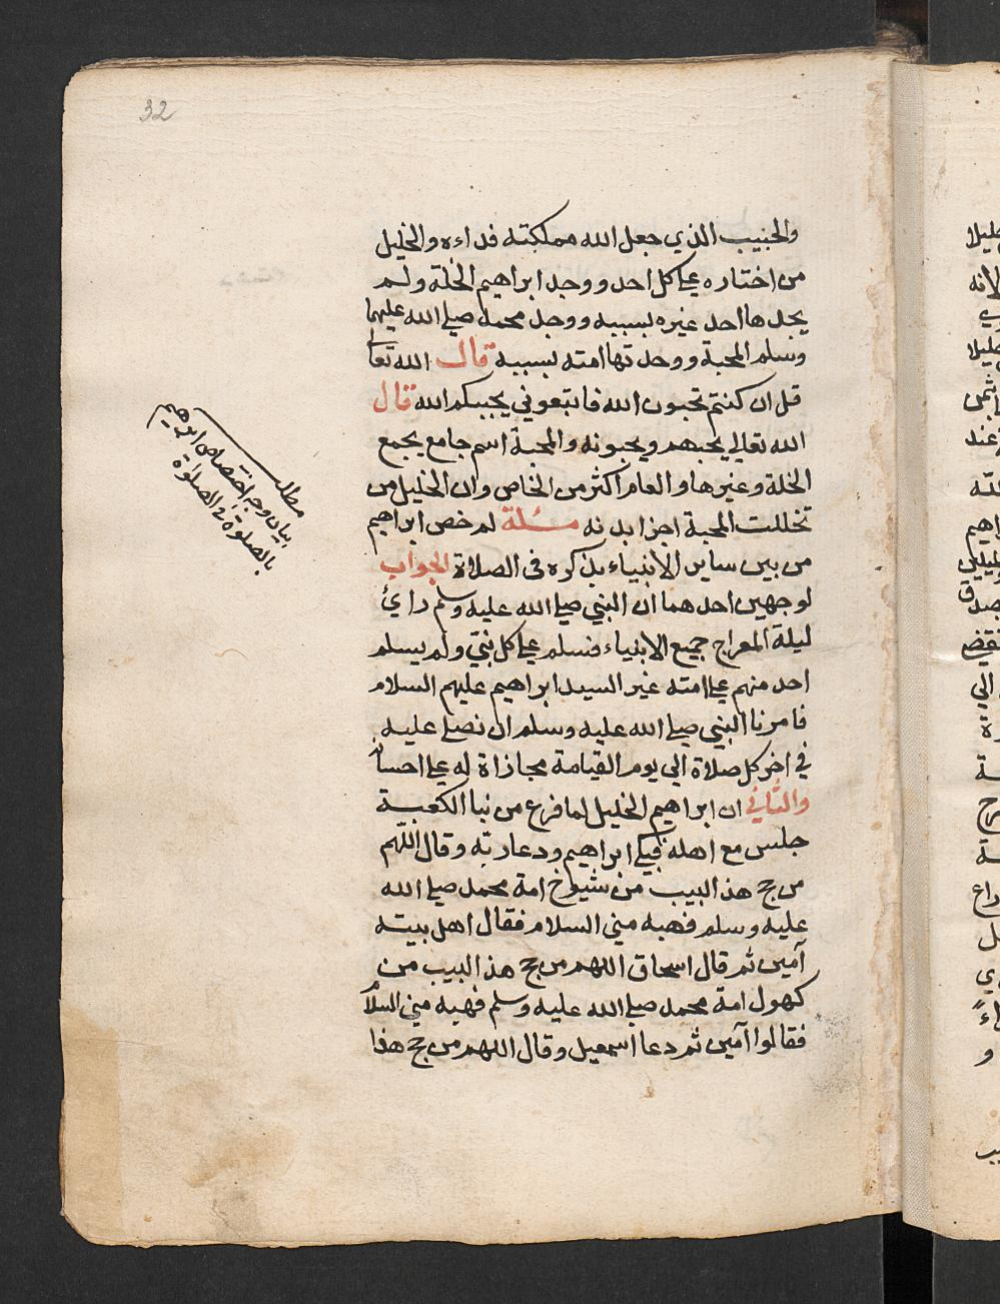 32
والحبيب الذي جعل الله مملكته فداءه والخليل
من اختاره على كل احد ووجد ابراهيم الخلة ولم
يجدها احد غيره بسببه ووجد محمد صلى الله عليهما
وسلم المحبة ووجدتها امته بسببه قال الله تعا
قل ان كنتم تحبون الله فاتبعوني يحببكم الله قال
الله تعالى يحبهم ويحبونه والمحبة اسم جامع يجمع
الخلة وغيرها والعام اكثر من الخاص وان الخليل من
تخللت المحبة اجزا بدنه مسئلة لم خص ابراهيم
من بين ساير الانبياء بذكره في الصلاة الجواب
لوجهين احدهما ان النبي صلى الله عليه وسلم رائ
ليلة المعراج جميع الانبياء فسلم على كل نبي ولم يسلم
احد منهم على امته غير السيد ابراهيم عليهم السلام
فامرنا النبي صلى الله عليه وسلم ان نصلى عليه
في اخر كل صلاة الى يوم القيامة مجازاة له على احسانه
والثاني ان ابراهيم الخليل لما فرغ من بنا الكعبة
جلس مع اهله فبكى ابراهيم ودعا ربه وقال اللهم
من حج هذ البيب من شيوخ امة محمد صلى الله
عليه وسلم فهبه مني السلام فقال اهل بيته
آمين ثم قال اسحاق اللهم من حج هذ البيب من
كهول امة محمد صلى الله عليه وسلم فهبه مني السلا
فقالوا آمين ثم دعا اسمعيل وقال اللهم من حج هذا
مطلب
بيان وجه اختصاص ابرهيم
بالصلوة في الصلوة